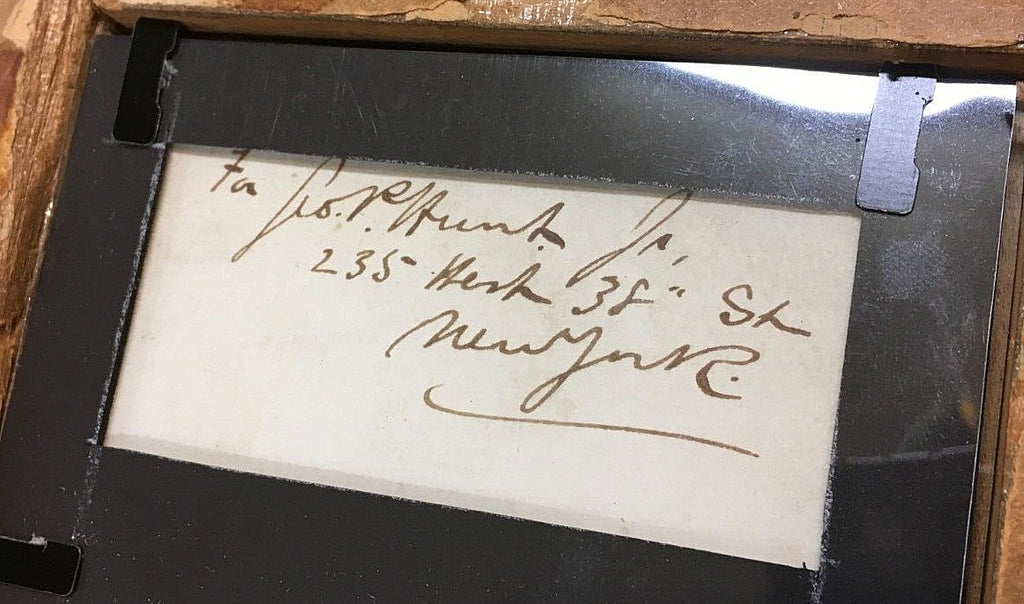 For Geo. P. Hunt. Jr,
235 West 38" St
New York.